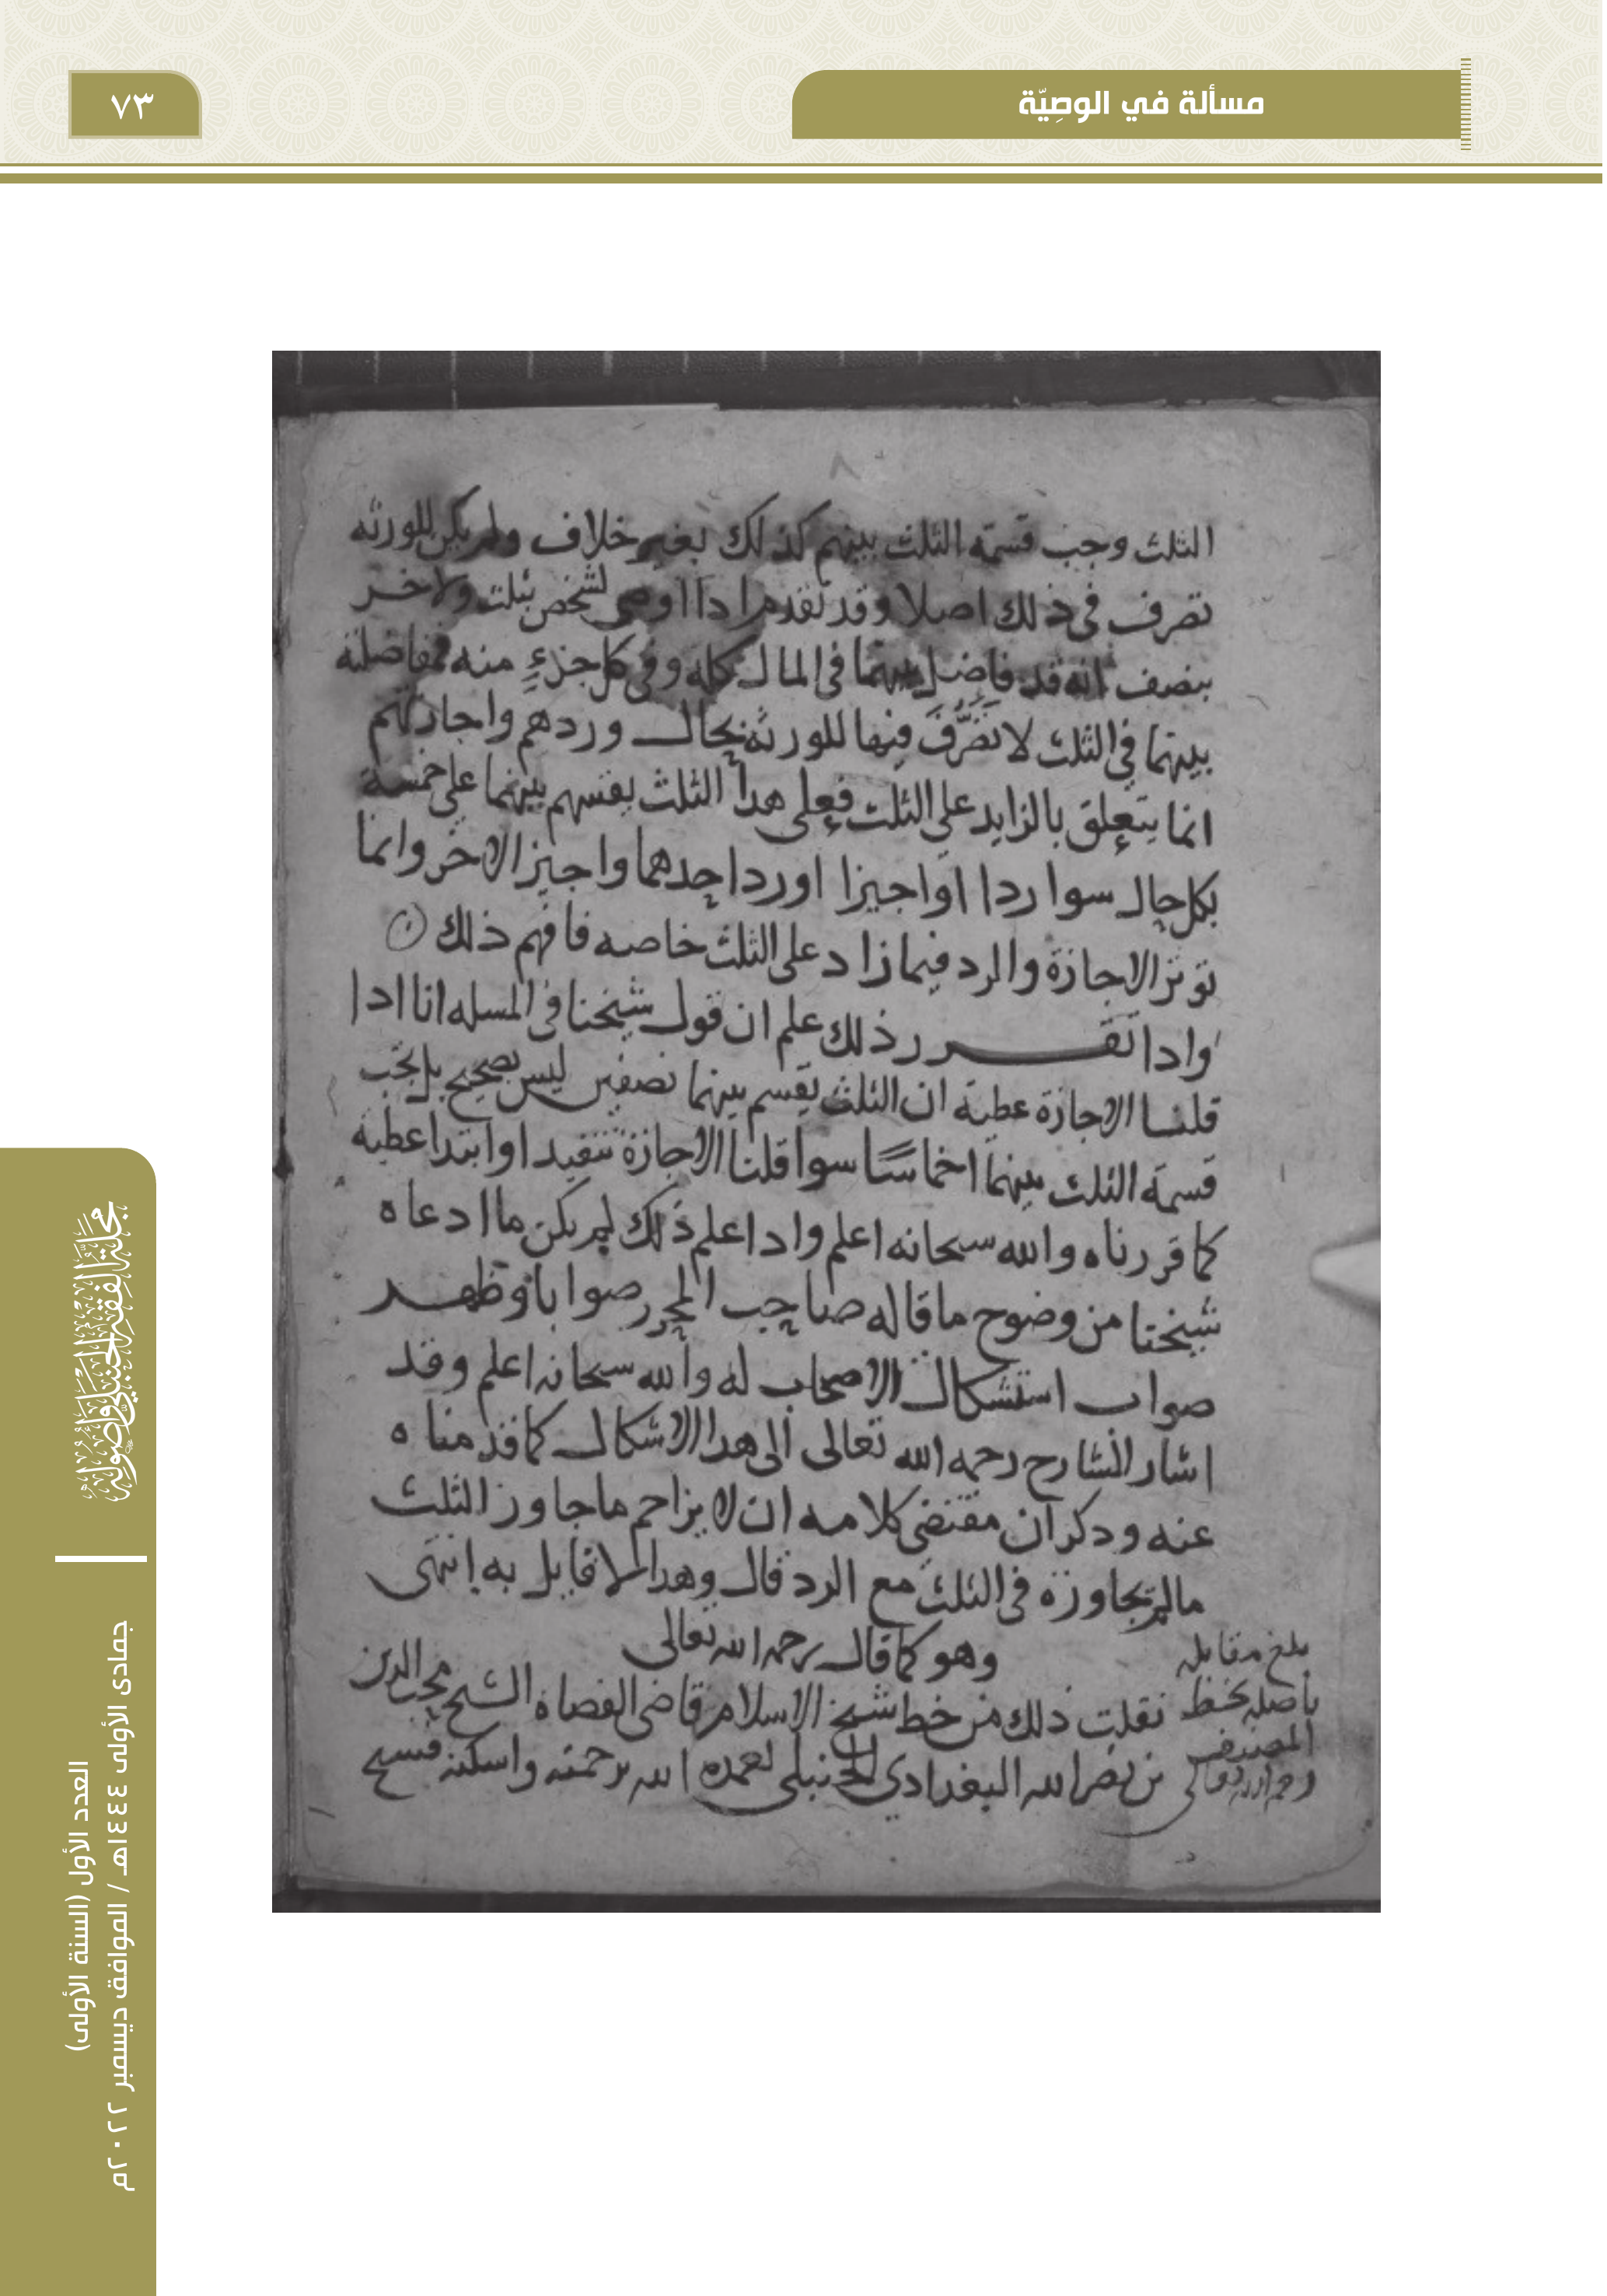 مسألة في الوصِيّة
٧٣
الثلث وجب قسمة الثلث بينهم كذلك بغير خلاف ولم يكن للورثه
تصرف في ذلك اصلا وقد تقدم اذا اوصى لشخص بثلث ولاخر
بنصف انه قد فاضل بينهما في المال كله وفي كل جزءٍ منه فمفاضلته
بينهما في الثلث لا تصرُّفَ فيها للورثة بحال وردهم واجازتهم
انما يتعلق بالزايد على الثلث فعلى هدا الثلث يقسم بينهما على خمسة
بكل حال سوا ردا او اجيزا او رد احدهما واجيز الاخر وانما
توثر الاجازة والرد فيما زاد على الثلث خاصه فافهم ذلك
وادا تقرر ذلك علم ان قول شيخنا في المسله انا ادا
قلنا الاجازة عطية ان الثلث يقسم بينهما نصفين ليس بصحيح بل يجب
قسمة الثلث بينهما اخماسًا سوا قلنا الاجازة تنفيد او ابتدا عطية
كما قررناه والله سبحانه اعلم وادا علم ذلك لم يكن ما ادعاه
شيخنا من وضوح ما قاله صاحب المحرر صوابا وظهر
صواب استشكال الاصحاب له والله سبحانه اعلم وقد
اشار الشارح رحمه الله تعالى الى هدا الاشكال كما قدمناه
عنه ودكر ان مقتضى كلامه ان لا يزاحم ما جاوز الثلث
مالم يجاوزه في الثلث مع الرد قال وهدا لا قايل به انتهى
وهو كما قال رحمه الله تعالى
نقلت ذلك من خط شيخ الاسلام قاضي القضاة الشيخ محب الدين
بن نصر الله البغدادي الحنبلي تغمده الله برحمته واسكنه فسيح
بلغ مقابله
بأصله بخط
المصنف
رحمه الله تعالى
مجلة الفقه الحنبلي وأصوله
العدد الأول (السنة الأولى)
جمادى الأولى ١٤٤٤هـ / الموافق ديسمبر ٢٠٢٢م